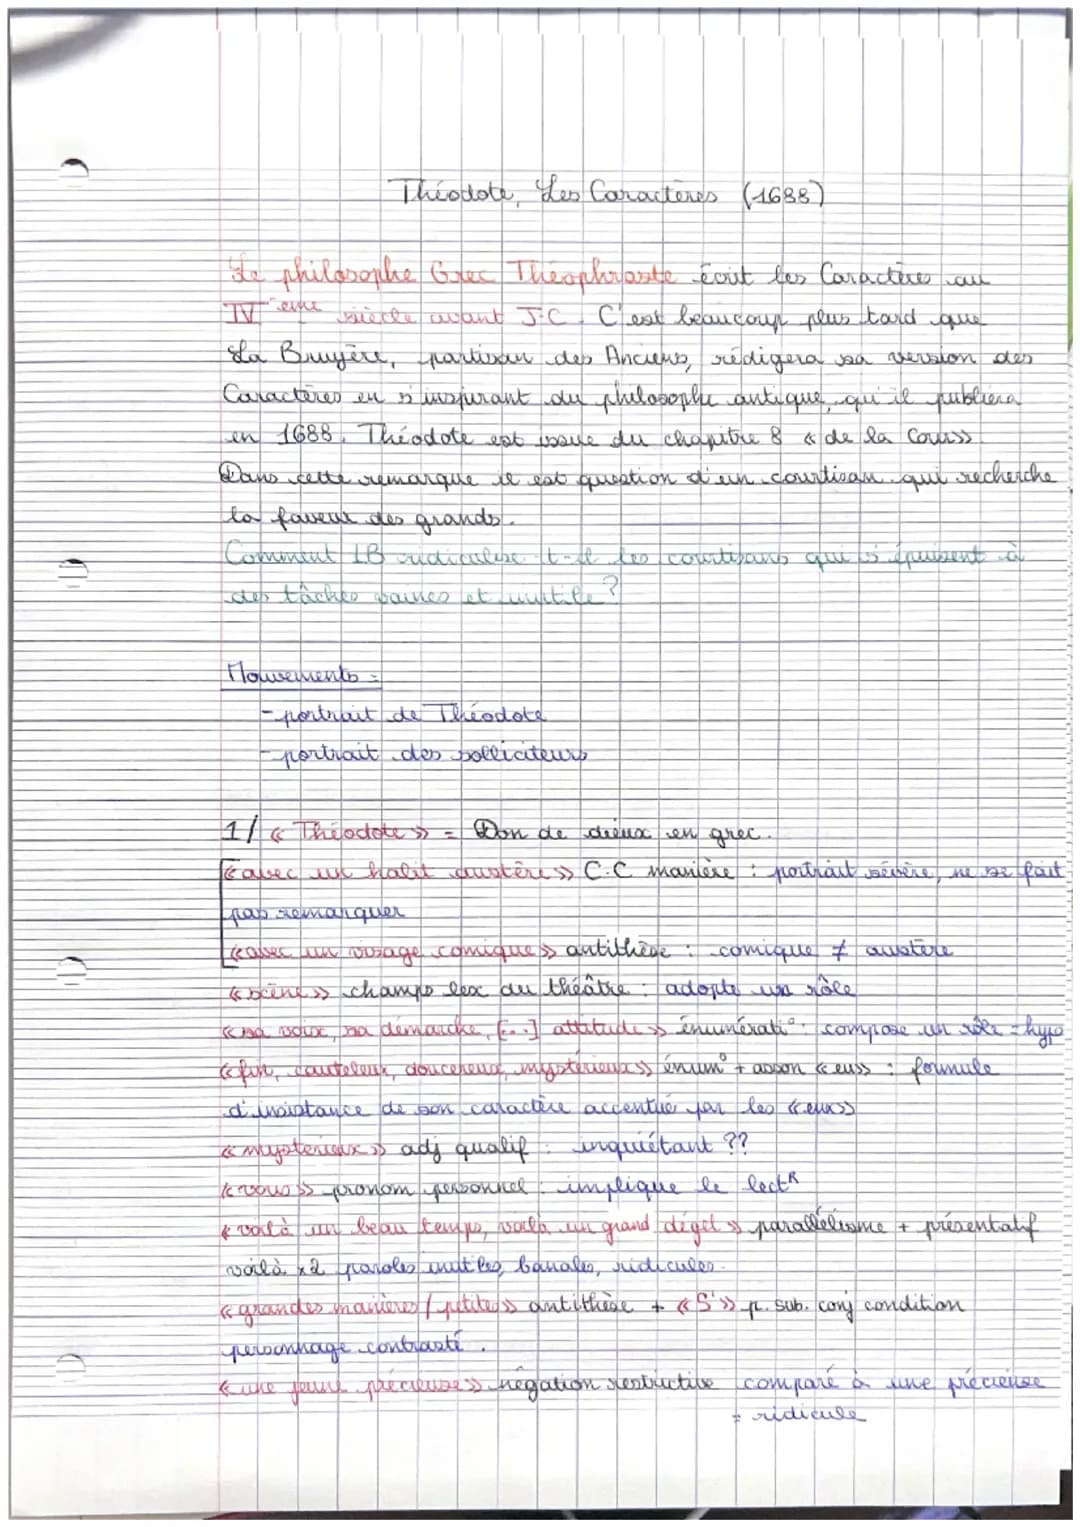 Théodote, Les Caractères (1688)
Le philosophe Grec Théophraste écrit les Caractères au
IV ème siècle avant J-C. C'est beaucoup plus tard que
La Bruyère, partisan des Anciens, rédigera sa version des
Caractères en s'inspirant du philosophe antique, qu'il publiera
en 1688. Théodote est issue du chapitre 8 « de la Cour».
Dans cette remarque il est question d'un courtisan qui recherche
la faveur des grands.
Comment LB ridiculise-t-il les courtisans qui s'épuisent à
des tâches vaines et inutile ?
Mouvements :
- portrait de Théodote
- portrait des solliciteurs
1/ « Théodote » = Don de dieux en grec.
« avec un habit austère » C.C manière : portrait sévère, ne se fait
pas remarquer
« avec un visage comique » antithèse : comique ≠ austère
« scène » champs lex du théâtre : adopte un rôle
« sa voix, sa démarche, [...] attitude » énumérat° : compose un rôle = hypo
« fin, cauteleux, doucereux, mystérieux » énum° + asson « eux » : formule
d'insistance de son caractère accentué par les « eux »
« mystérieux » adj qualif : inquiétant ??
« vous » pronom personnel : implique le lectR
« voilà un beau temps, voilà un grand dégel » parallélisme + présentatif
voilà x2 paroles inutiles, banales, ridicules.
« grandes manières / petites » antithèse + « S' » p. sub. conj condition
personnage contrasté.
« une jeune précieuse » négation restrictive comparé à une précieuse
= ridicule